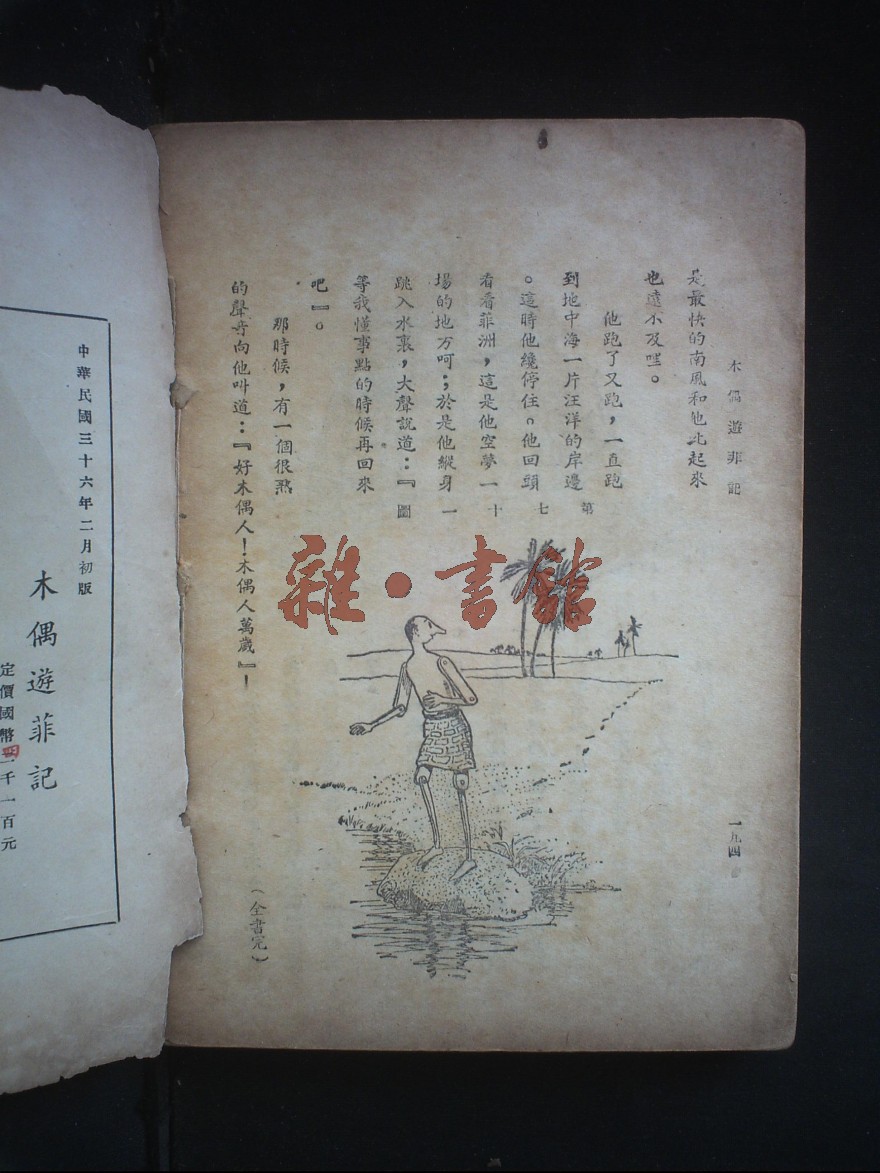 木偶遊非記
是最快的南風和他比起來
也遠不及哩。
他跑了又跑，一直跑
到地中海一片汪洋的岸邊
。這時他纔停住。他回頭
看看菲洲，這是他空夢一
場的地方呵；於是他縱身
跳入水裏，大聲說道：『
等我懂事點的時候再回來
吧』。
那時候，有一個很熟
的聲音向他叫道：『好木偶人！木偶人萬歲』！
（全書完）
第七十一圖
一九四
雜·書館
中華民國三十六年二月初版
木偶遊菲記
定價國幣 二千一百元